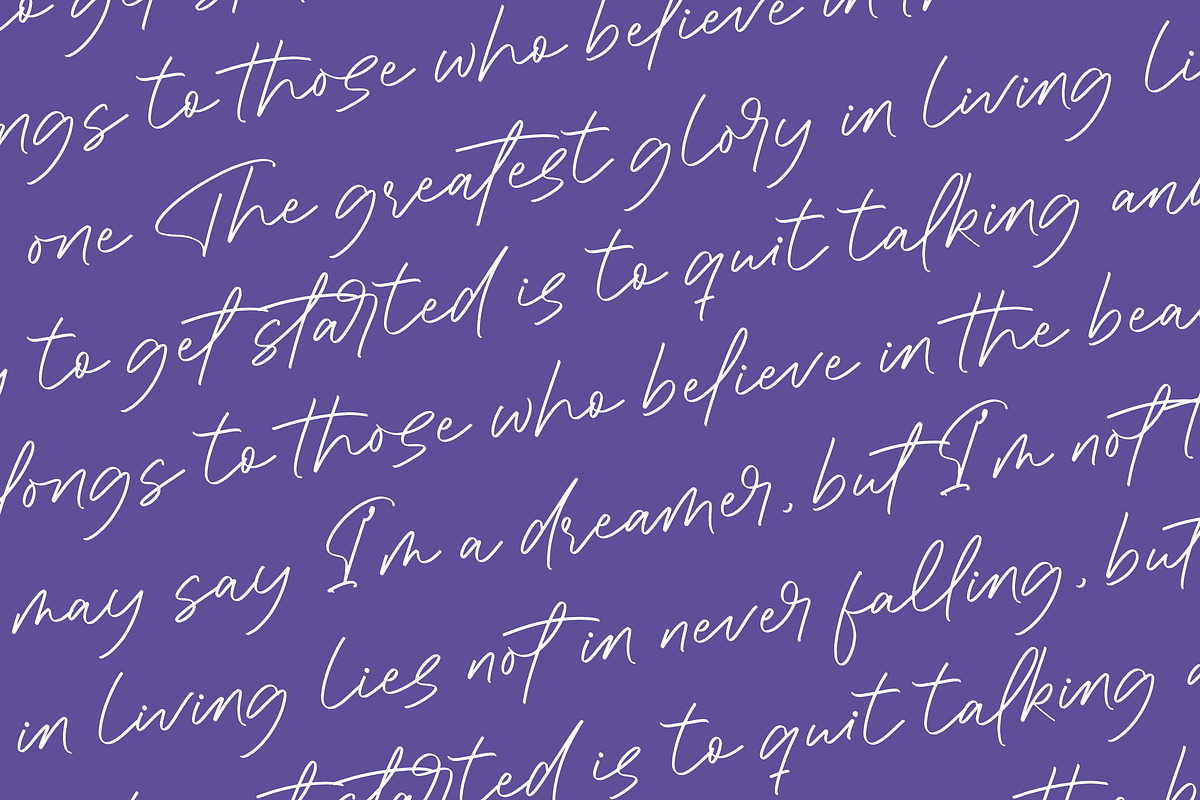 to get sta
ngs to those who believe in th
one The greatest glory in living li
y to get started is to quit talking and
longs to those who believe in the bea
may say I'm a dreamer, but I'm not t
in living lies not in never falling, but
started is to quit talking a
the b